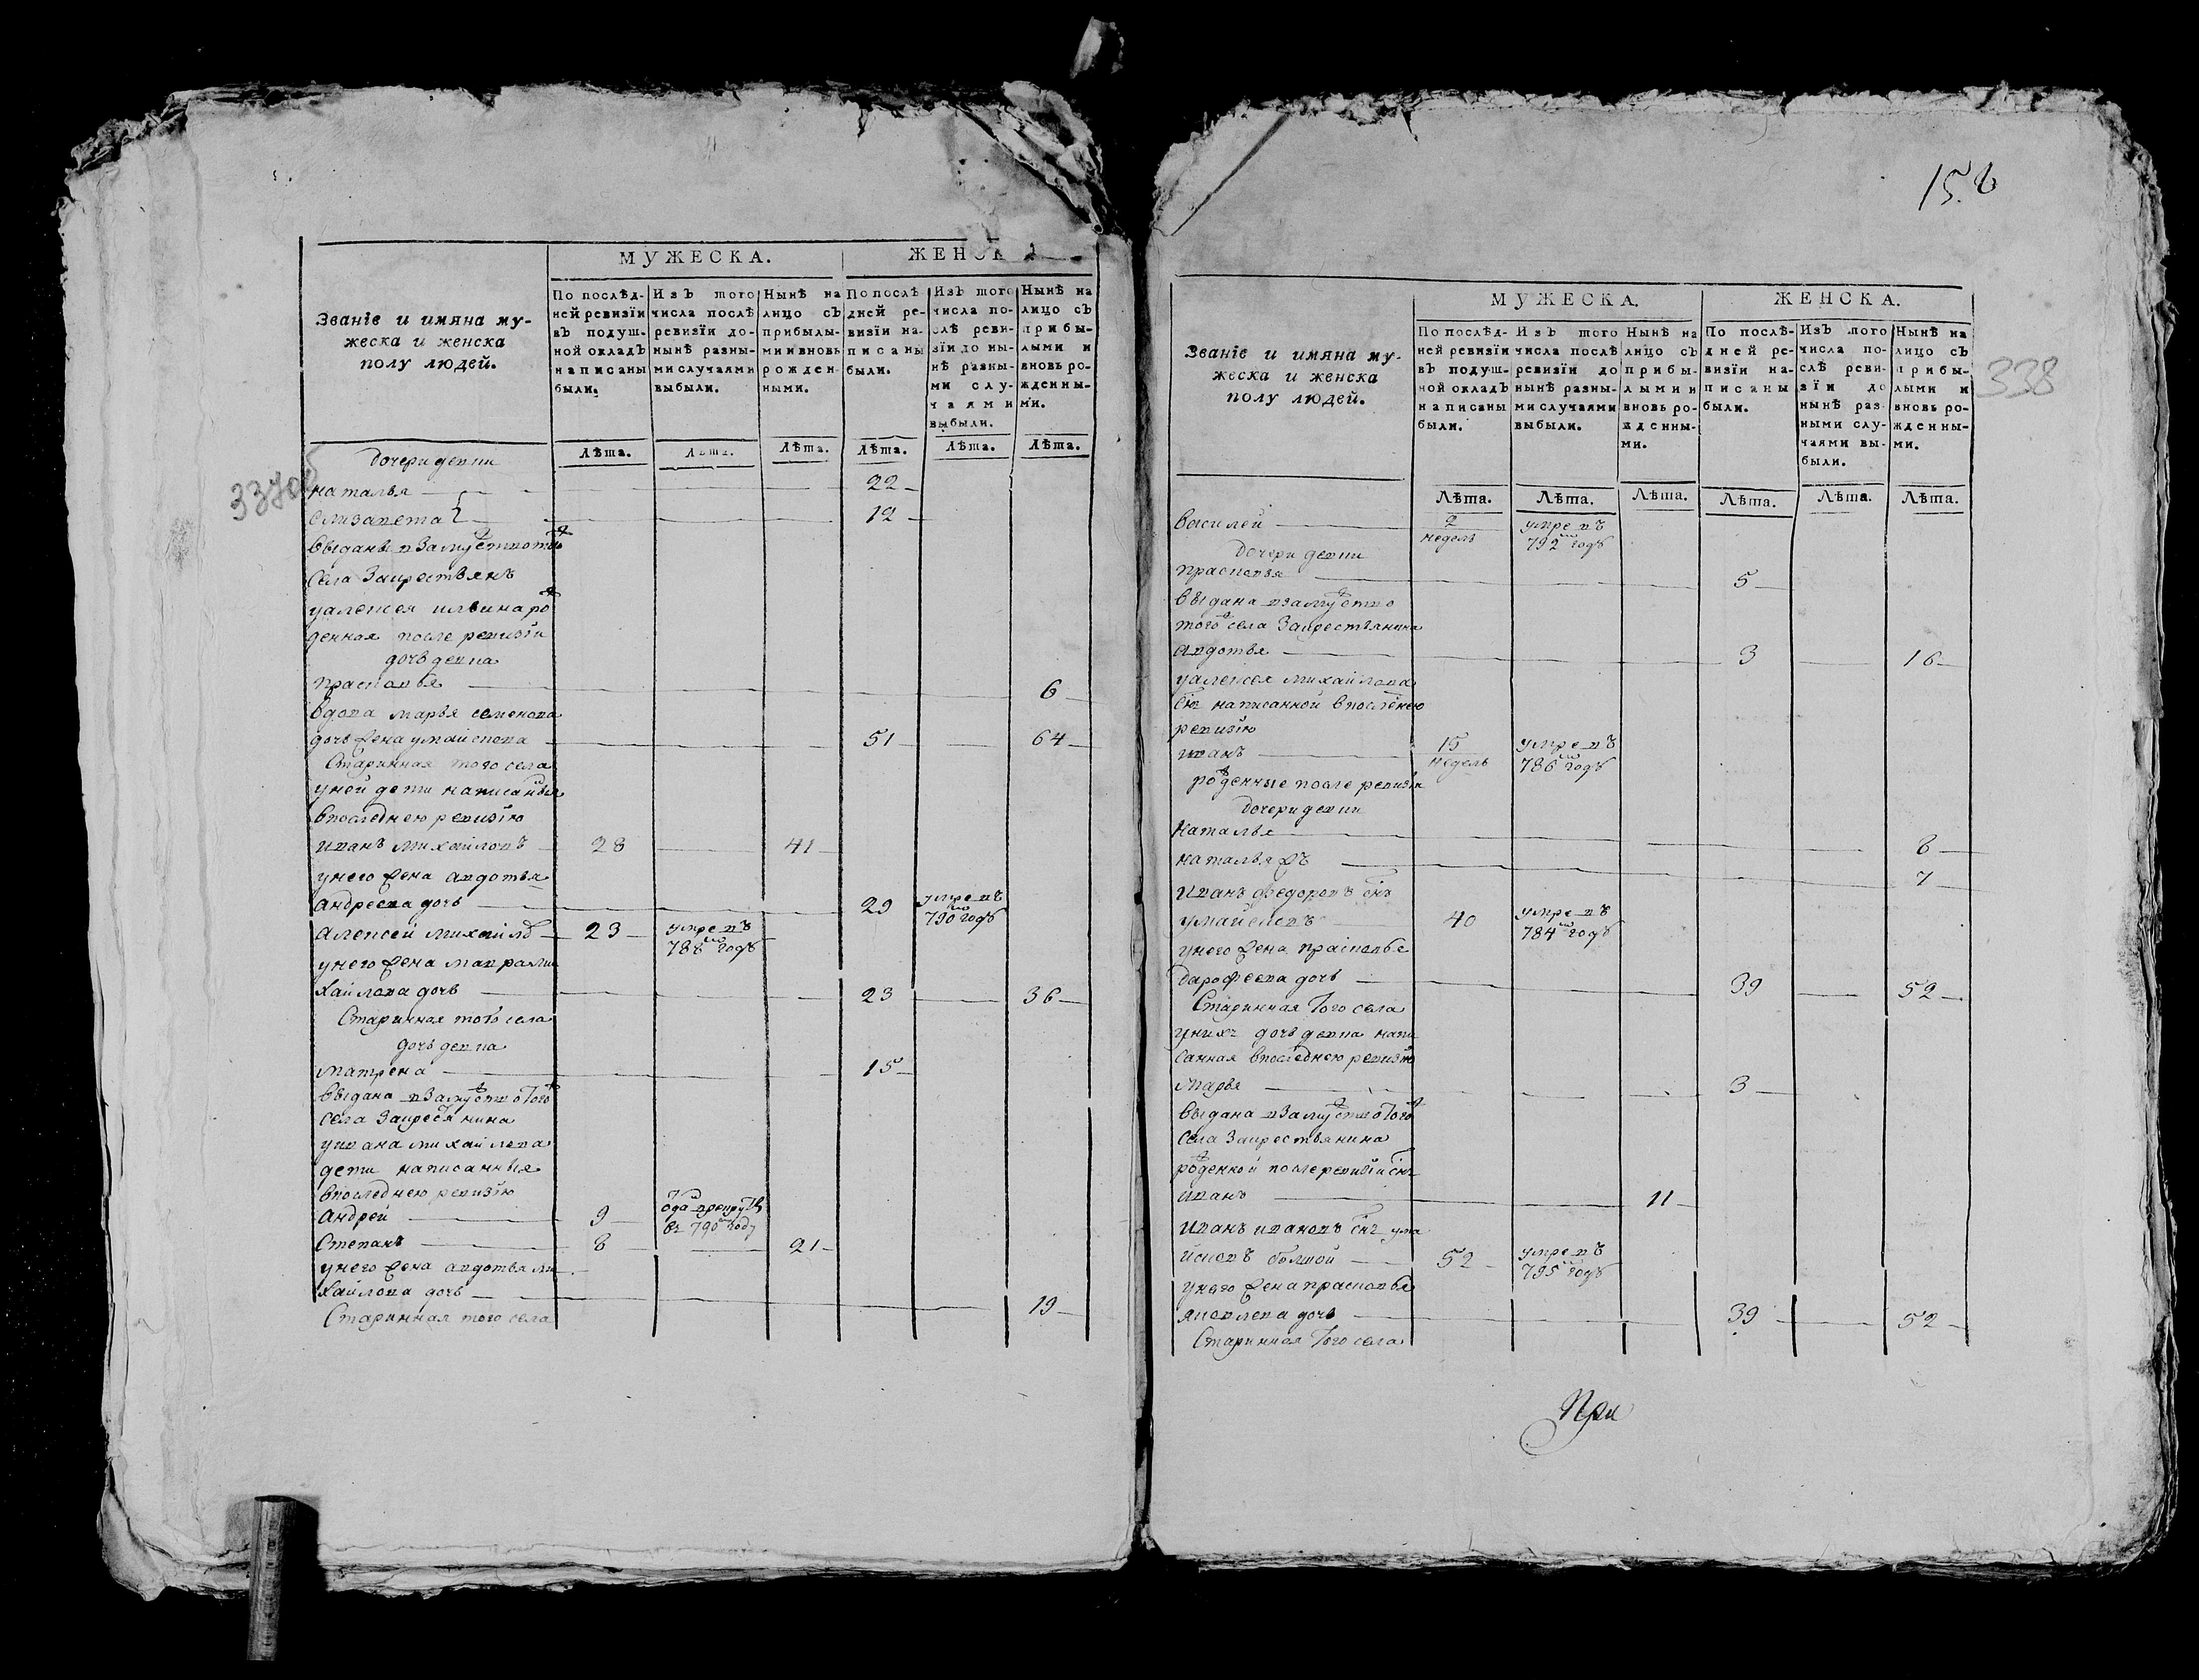 МУЖЕСКА.
ЖЕНСК
Званіе и имяна му-
жеска и женска
полу людей.
По послѣд-
ней ревизїи
въ подуш-
ной окладъ
написаны
были.
Изъ того
числа послѣ
ревизїи до-
нынѣ разны-
ми случаями
выбыли.
Нынѣ на
лицо съ
прибылы-
ми и вновь
рожден-
ными.
По послѣ
дней ре-
визїи на-
писаны
были.
Изъ того
числа по-
слѣ реви-
зїи до ны-
нѣ разны-
ми слу-
чаями
выбыли.
Нынѣ на
лицо съ
прибы-
лыми и
вновь ро-
жденны-
ми.
Лѣта. Лѣта. Лѣта. Лѣта. Лѣта. Лѣта.
дочери девки
337об
наталья 22
елизавета 12
выданы взамужство
села Закрестьянъ
уалексея ильина ро
денная после ревизїи
дочь девка
прасковья 6
вдова марья семенова
дочь жена умайкова 51 64
Старинная того села
уней дети написанныя
впоследнею ревизїю
иванъ михайловъ 28 41
унего жена авдотья
андреева дочь 29 умре въ 790м годѣ
алексей михайлов 23 умре въ 788м годѣ
унего жена мавра ми
хайлова дочь 23 36
Старинная того села
дочь девка
матрена 15
выдана взамужство того
села Закрестьянина
уивана михайлова
дети написанныя
впоследнею ревизїю
андрей 9 вз 790м году
Степанъ 8 21
унего жена авдотья ми
хайлова дочь 19
Старинная того села
158
МУЖЕСКА.
ЖЕНСКА.
Званіе и имяна му-
жеска и женска
полу людей.
По послѣд-
ней ревизїи
въ подуш-
ной окладъ
написаны
были.
Изъ того
числа послѣ
ревизїи до
нынѣ разны-
ми случаями
выбыли.
Нынѣ на
лицо съ
прибы-
лыми и
вновь ро-
жденны-
ми.
По послѣ-
дней ре-
визїи на-
писаны
были.
Изъ того
числа по-
слѣ реви-
зїи до
нынѣ раз-
ными слу-
чаями вы-
были.
Нынѣ на
лицо съ
прибы-
лыми и
вновь ро-
жденны-
ми.
338
Лѣта. Лѣта. Лѣта. Лѣта. Лѣта. Лѣта.
василей 2 недель умре въ 792м годѣ
дочери девки
прасковья 5
выдана взамужство
того села Закрестьянина
авдотья 3 16
уалексея михайлова
снъ написанной впоследнею
ревизїю
иванъ 15 недель умре въ 786м годѣ
роденные после ревизїи
дочери девки
Наталья 8
наталья жъ 7
иванъ федоровъ снъ
умайковъ 40 умре въ 784м годѣ
унего жена прасковья
дарофеева дочь 39 52
Старинная того села
унихъ дочь девка напи
санная впоследнею ревизїю
марья 3
выдана взамужство того
села Закрестьянина
роденной после ревизїи снъ
иванъ 11
иванъ ивановъ снъ ума
йковъ болшой 52 умре въ 795м годѣ
унего жена прасковья
яковлева дочь 39 52
Старинная того села
При